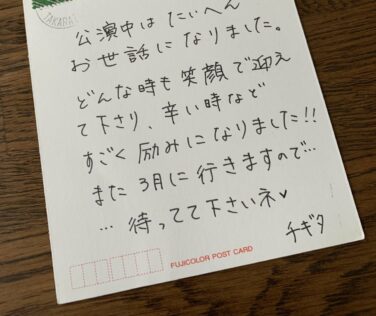 TAKARAZ
公演中はたいへん
お世話になりました。
どんな時も笑顔で迎え
て下さり、辛い時など
すごく励みになりました!!
また3月に行きますので…
…待ってて下さいネ♥
チギタ
FUJICOLOR POST CARD